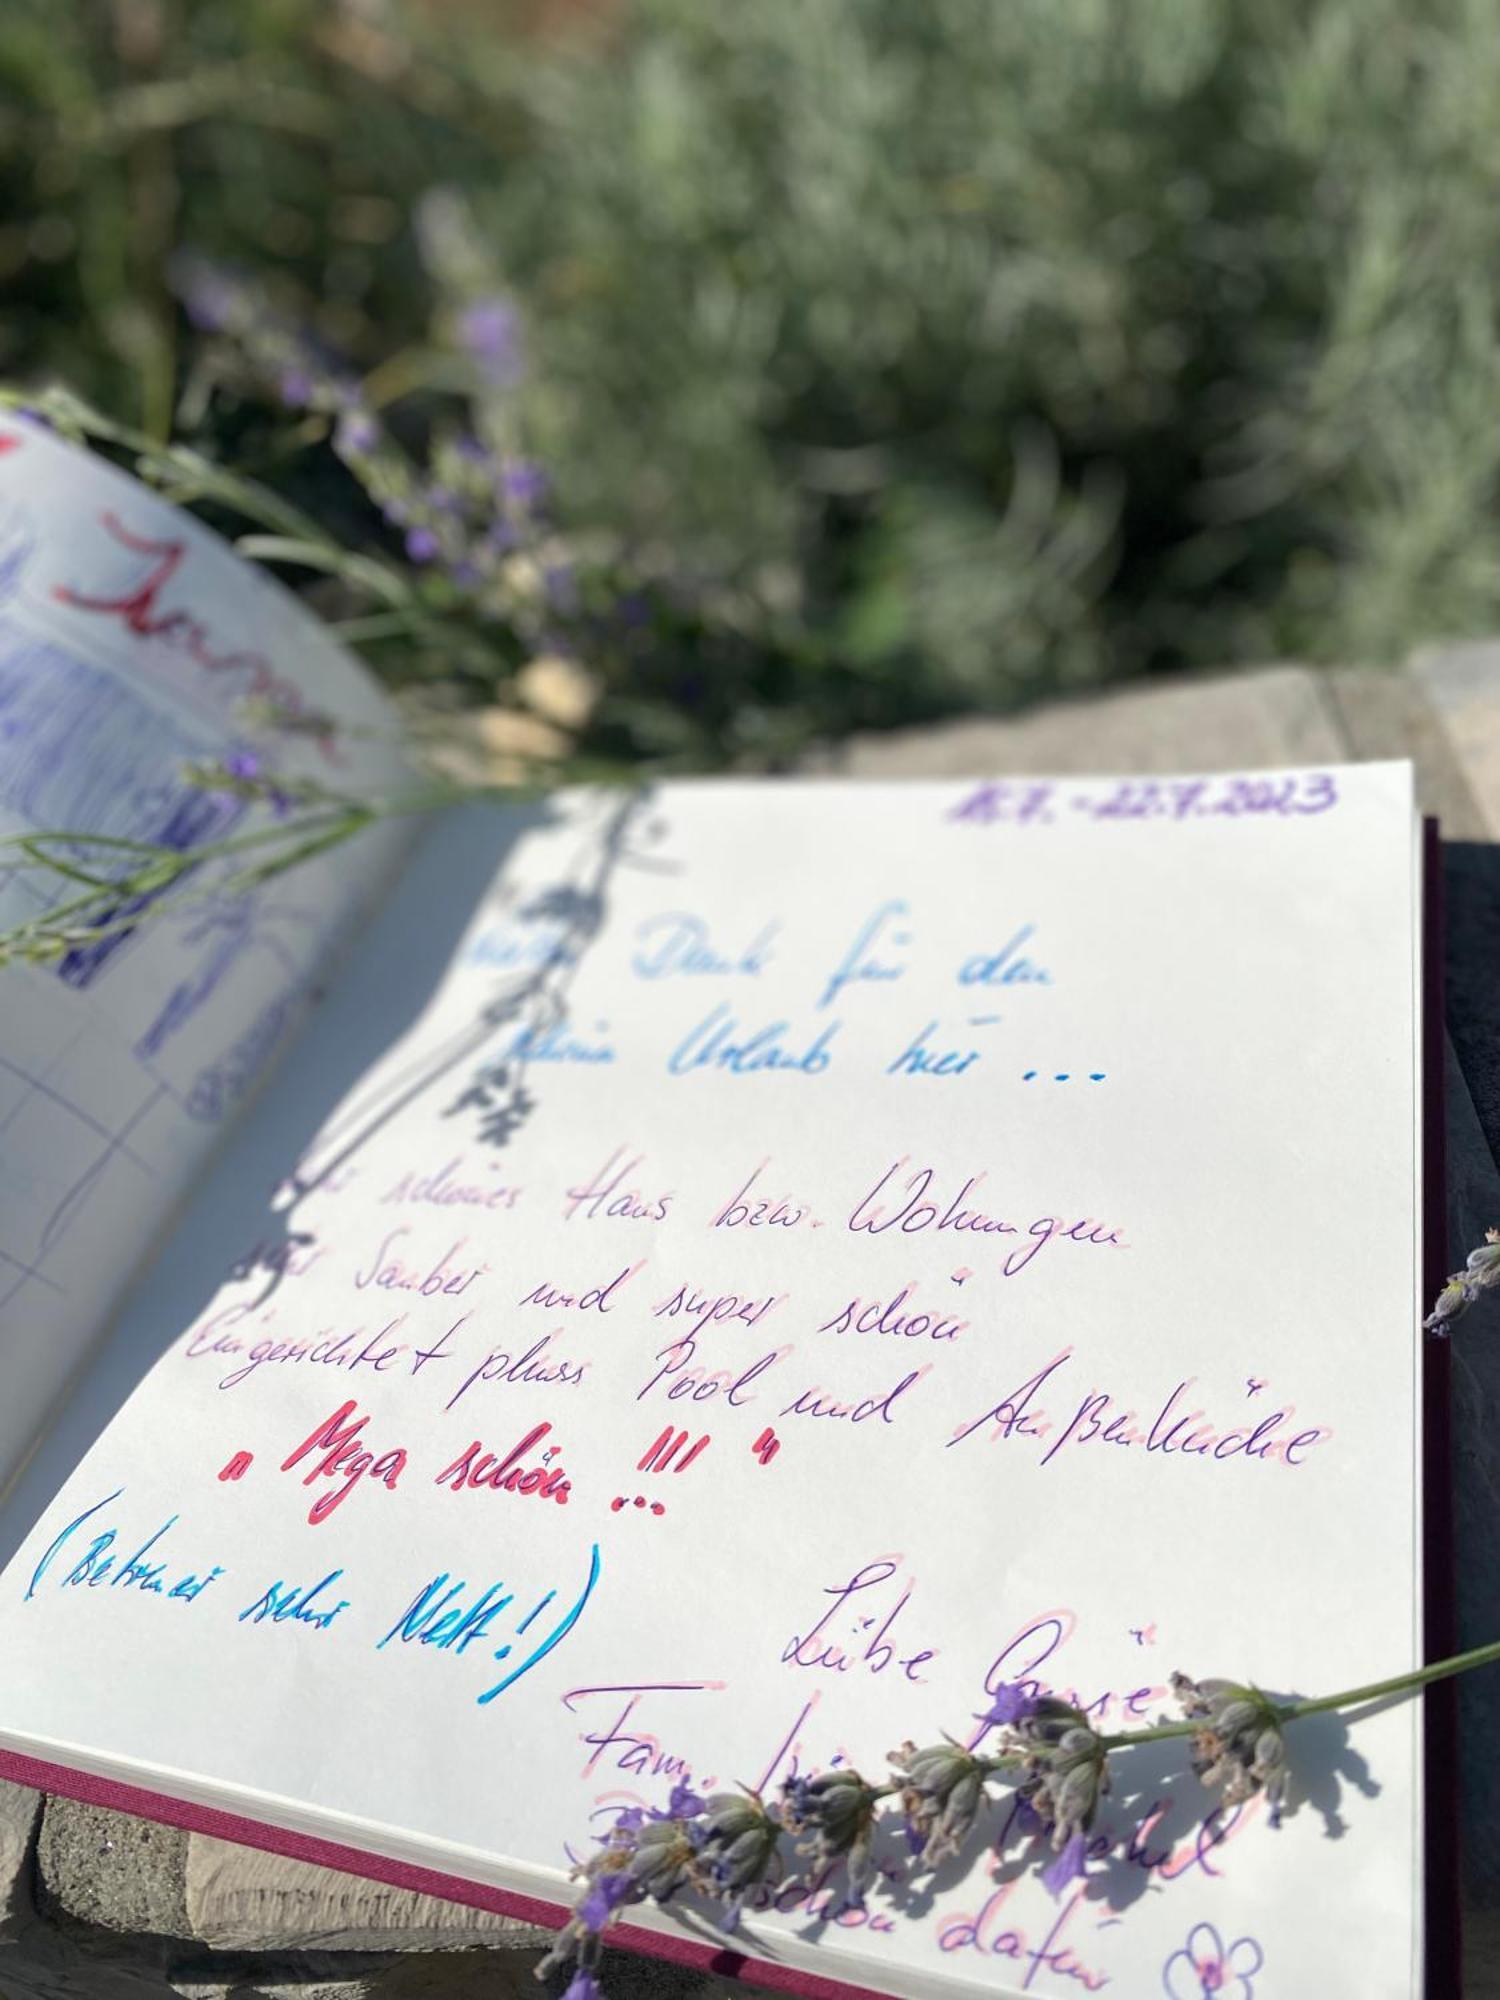 - 22.7.2023
Dank für den
Urlaub hier ...
schönes Haus bzw. Wohnungen
Sauber und super schön
Eingerichtet pluss Pool und Außenküche
„ Mega schön !!! “
(Betreuer sehr Nett!)
Liebe Grüsse
Fam.
schön dafür